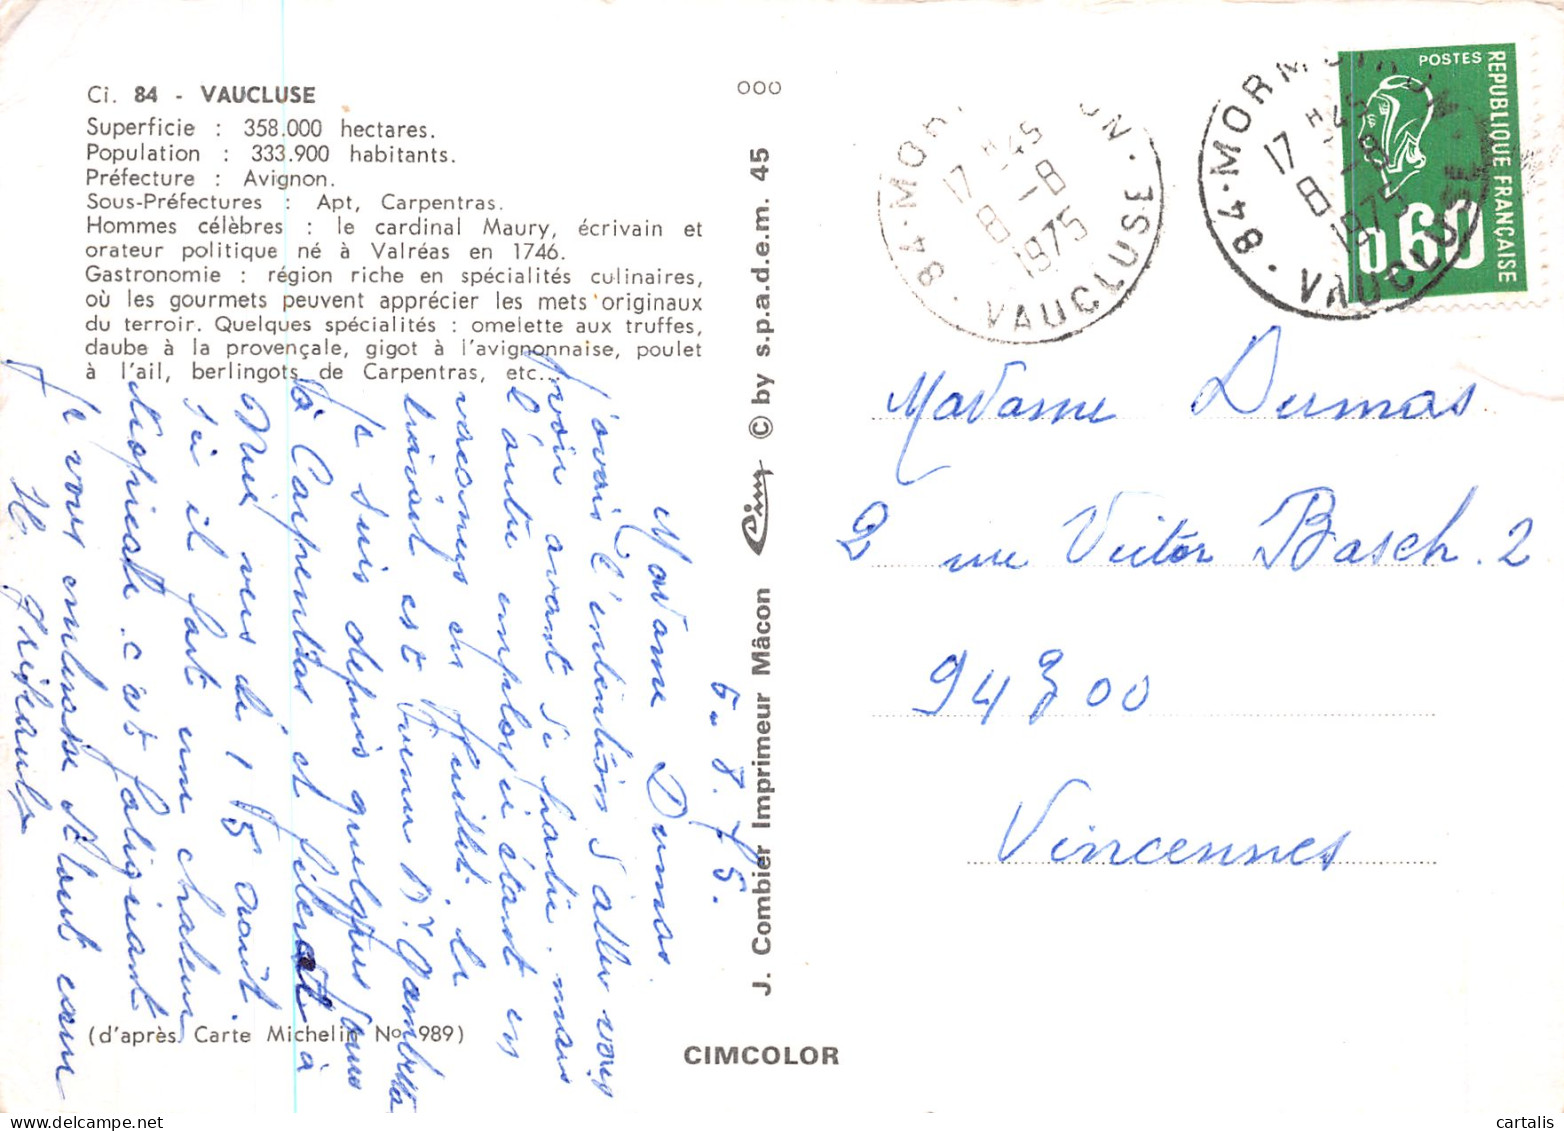 Ci. 84 - VAUCLUSE
Superficie : 358.000 hectares.
Population : 333.900 habitants.
Préfecture : Avignon.
Sous-Préfectures : Apt, Carpentras.
Hommes célèbres : le cardinal Maury, écrivain et
orateur politique né à Valréas en 1746.
Gastronomie : région riche en spécialités culinaires,
où les gourmets peuvent apprécier les mets originaux
du terroir. Quelques spécialités : omelette aux truffes,
daube à la provençale, gigot à l'avignonnaise, poulet
à l'ail, berlingots de Carpentras, etc...
(d'après Carte Michelin No 989)
5.8.75.
Madame Dumas.
j'avais l'intention d'aller vous
voir avant de partir. mais
l'autre employée étant en
vacances en Juillet. le
travail est venu Dr Gambetta
Je suis depuis quelques jours
à Carpentras et filerai à
Nice vers le 15 août.
ici il fait une chaleur
tropicale. c'est fatiguant
Je vous embrasse de tout cœur
J. Combier Imprimeur Mâcon Cim © by s.p.a.d.e.m. 45
CIMCOLOR
000
84 · MORMOIRON · VAUCLUSE
17 H 45
8 - 8
1975
84 · MORMOIRON · VAUCLUSE
17 H 45
8 - 8
1975
POSTES
REPUBLIQUE FRANÇAISE
0,60
Madame Dumas
2 rue Victor Basch. 2
94300
Vincennes
cartalis - delcampe.net